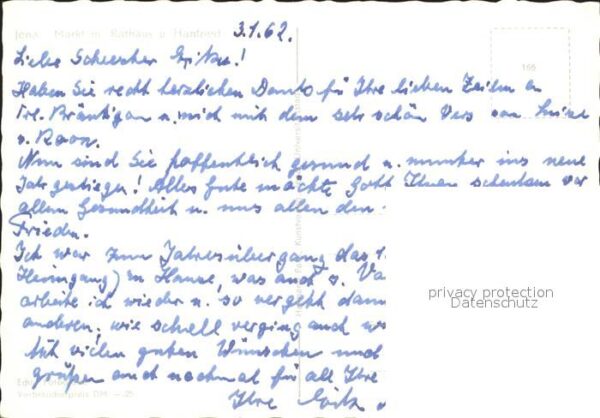 Jena Markt m. Rathaus u. Hanfried
3.1.62.
Liebe Schwester !
166
Haben Sie recht herzlichen Dank für Ihre lieben Zeilen an
Frl. Bräutigam u. mich mit dem sehr schön Vers von
v. Roon.
Nun sind Sie hoffentlich gesund u. munter ins neue
Jahr gestiegen! Alles Gute möchte Gott Ihnen schenken vor
allem Gesundheit u. uns allen den
Frieden.
Ich war zum Jahresübergang das
Heimgang) zu Hause, was auch
arbeite ich wieder u. so vergeht dann
anderen, wie schnell verging auch
Mit vielen guten Wünschen und
grüßen auch nochmal für all Ihre
Ihre
privacy protection
Datenschutz
Verbraucherpreis DM -.25